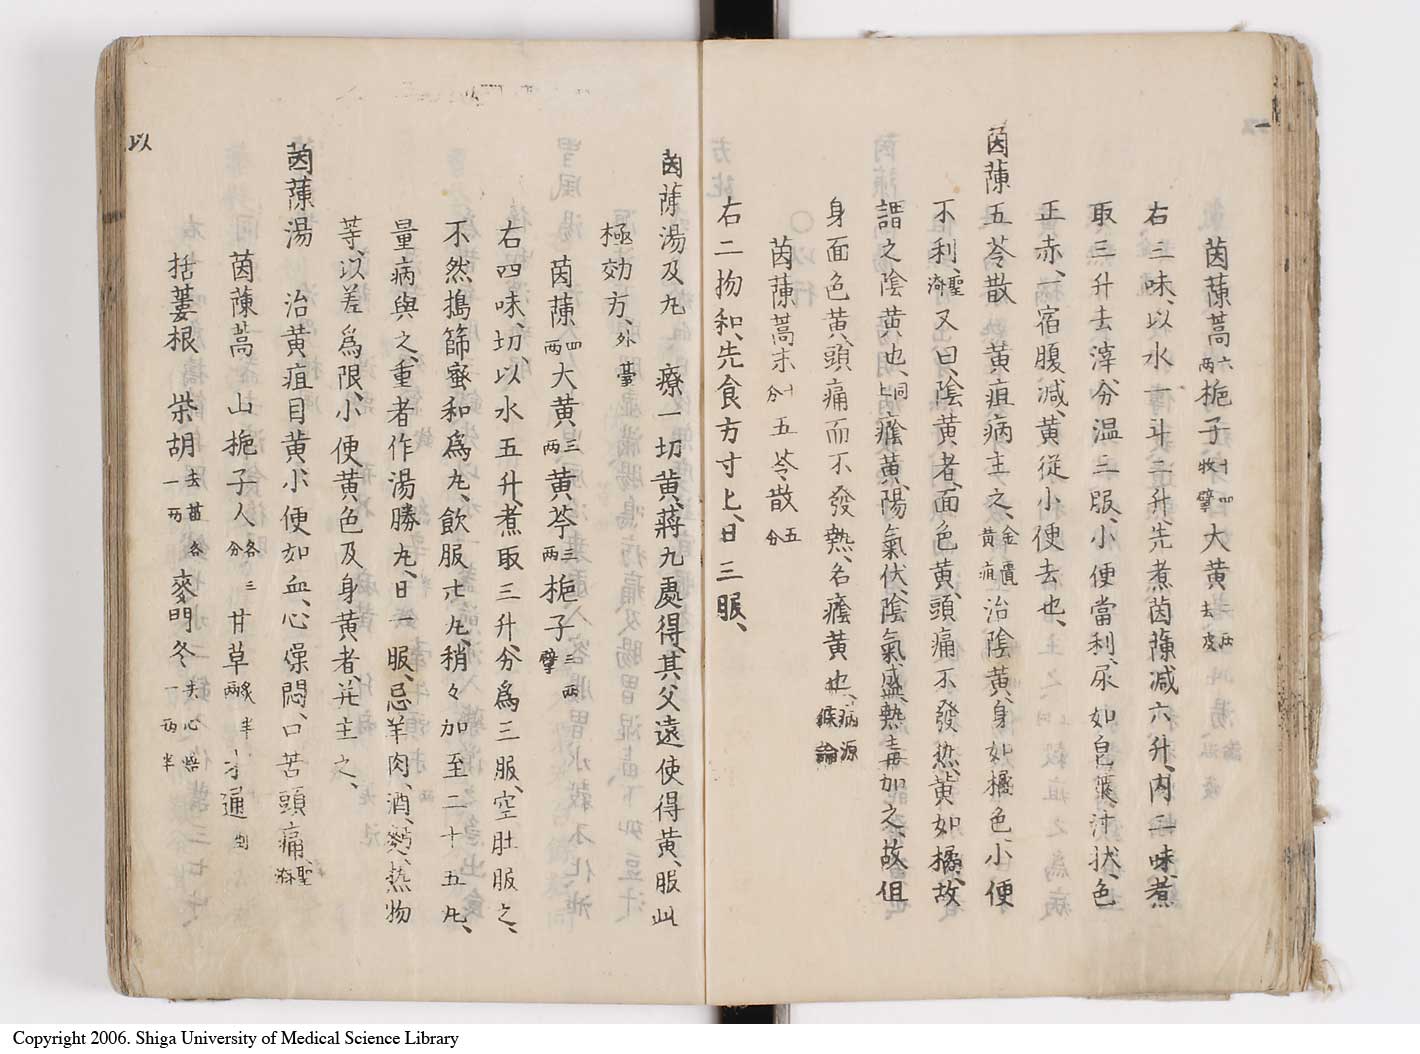 茵蔯蒿六兩梔子十四牧擘大黃二兩去皮
右三味、以水一斗二升、先煮茵蔯減六升、內二味、煮
取三升去滓分温三服、小便當利、尿如皂莢汁狀、色
正赤、一宿腹減、黃從小便去也、
茵蔯五苓散 黃疸病主之、金匱黃疸治陰黃、身如橘色、小便
不利、聖濟又曰、陰黃者、面色黃、頭痛不發熱、黃如橘、故
謂之陰黃也、同上癊黃、陽氣伏、陰氣盛、熱毒加之、故但
身面色黃、頭痛而不發熱、名癊黃也、病源候論
茵蔯蒿末十分 五苓散五分
右二物和、先食方寸匕、日三服、
茵蔯湯及丸 療一切黃、蔣九處得、其父遠使得黃、服此
極効方、外臺
茵蔯四兩大黃三兩黃芩三兩梔子三兩擘
右四味、切、以水五升、煮取三升、分爲三服、空肚服之、
不然搗篩蜜和爲丸、飲服廿丸、稍々加至二十五丸、
量病與之、重者作湯勝丸、日一服、忌羊肉、酒、麪、熱物
等、以差爲限、小便黃色及身黃者、并主之、
茵蔯湯 治黃疸目黃、小便如血、心燥悶、口苦頭痛、聖濟
茵蔯蒿 山梔子人各三分 甘草炙半兩 才通剉
括蔞根 柴胡去苗各一兩 麥門冬去心焙兩半
以
一
Copyright 2006. Shiga University of Medical Science Library